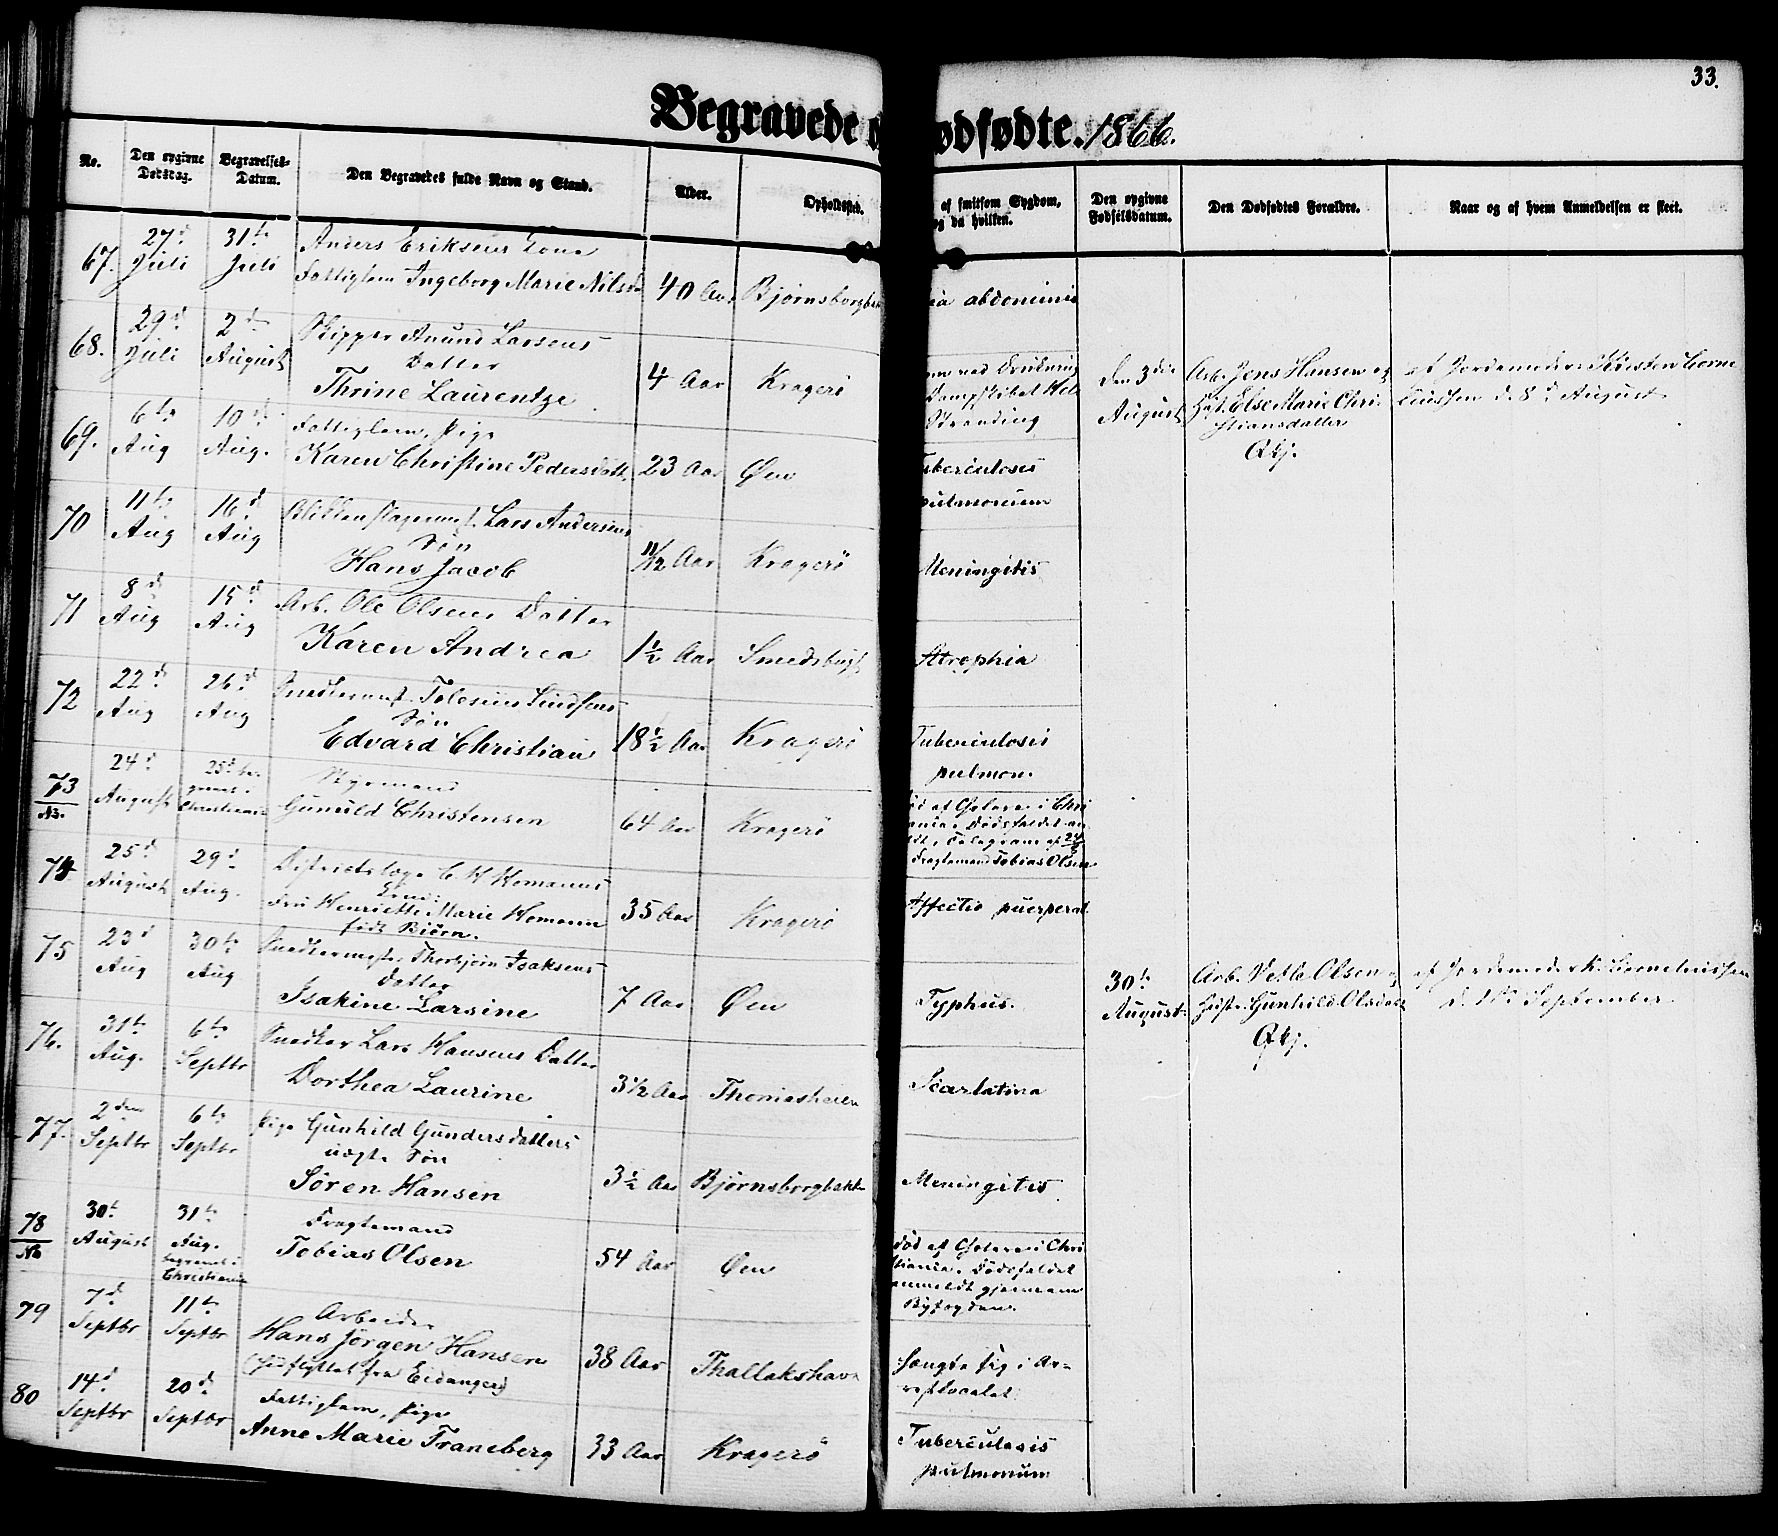 33.
Begravede o ødfødte. 1866.
No. | Den opgivne Dødsdag. | Begravelses-Datum. | Den Begravedes fulde Navn og Stand. | Alder. | Opholdssted. | af smitsom Sygdom, og da hvilken. | Den opgivne Fødselsdatum. | Den Dødfødtes Forældre. | Naar og af hvem Anmeldelsen er skeet.
67. 27d Juli 31te Juli Anders Eriksens Kone
Fattiglem Ingeborg Marie Nilsd 40 Aar Bjørnsborgbak ia abdominis
68. 29d Juli 2den August Skipper Anund Larsens
Datter
Thrine Laurentze 4 Aar Kragerö
ved
Dampskibet Hel
Stranding
Den 3die August
Arb. Jens Hansen og
Hst. Else Marie Chri-
stiansdatter
Gkj.
af Jordemoder Kirsten Corne
liussen d. 8d August
69. 6te Aug 10d Aug. Fattiglem, Pige
Karen Christine Pedersdatt. 23 Aar Øen Tuberculosis
pulmonum
70 11te Aug 16d Aug Blikkenslagermest. Lars Andersens
Søn
Hans Jacob 11/12 Aar Kragerö Meningitis
71 8d Aug 15d Aug Arb. Ole Olsens Datter
Karen Andrea 1½ Aar Smedsbugt Atrophia
72 22d Aug 26d Aug Snedkermest. Tolesius
Søn
Edvard Christian 18½ Aar Kragerö Tuberculosis
pulmon.
73 No. 24d August 25d be-
gravet i
Christiania
Styrmand
Gunuld Christensen 64 Aar Kragerö
død af Colera i Chri
ania. Dødsfaldet an
ldt i Telegram af 24/8
Fragtemand Tobias Olsen
74 25d August 29d Aug. Distriktslæge C. H. Homanns
Kone:
Fru Henriette Marie Homann
født Biörn. 35 Aar Kragerö Affectio puerperal.
75 23d Aug 30te Aug Snedkermester Thorbjörn Isaksens
Datter
Isakine Larsine 7 Aar Øen Typhus.
30te August.
Arb. Vetle Olsen og
Hustr. Gunhild Olsdatt
Gkj.
af Jordemoder K. Corneliussen
d. 1ste September
76. 31te Aug. 6te Septbr Snedker Lars Hansens Datter
Dorthea Laurine 3½ Aar Thomesheien Scarlatina
77. 2den Septbr 6te Septbr Pige Gunhild Gundersdatters
uægte Søn
Sören Hansen 3½ Aar Bjørnsborgbakk Meningitis
78 No 30te August 31te Aug.
begravet i
Christiania
Fragtemand
Tobias Olsen 54 Aar Øen
død af Colera i Chri
stiania. Dødsfaldet
anmeldt gjennem
Byfogden.
79 7d Septbr 11te Septbr Arbeider
Hans Jörgen Hansen
(Indflyttet fra Eidanger) 38 Aar Thallakshavn
hængte sig i Ar-
restlocalet
80 14d Septbr 20d Septbr Fattiglem, Pige
Anne Marie Traneberg 33 Aar Kragerö Tuberculosis
pulmonum